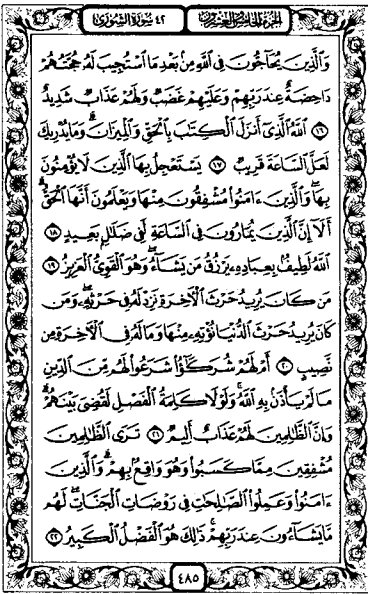 الجزء الخامس والعشرون ٤٢ سورة الشورى
وَٱلَّذِينَ يُحَآجُّونَ فِى ٱللَّهِ مِنۢ بَعْدِ مَا ٱسْتُجِيبَ لَهُۥ حُجَّتُهُمْ
دَاحِضَةٌ عِندَ رَبِّهِمْ وَعَلَيْهِمْ غَضَبٌ وَلَهُمْ عَذَابٌ شَدِيدٌ
١٦ ٱللَّهُ ٱلَّذِىٓ أَنزَلَ ٱلْكِتَٰبَ بِٱلْحَقِّ وَٱلْمِيزَانَ وَمَا يُدْرِيكَ
لَعَلَّ ٱلسَّاعَةَ قَرِيبٌ ١٧ يَسْتَعْجِلُ بِهَا ٱلَّذِينَ لَا يُؤْمِنُونَ
بِهَا وَٱلَّذِينَ ءَامَنُوا۟ مُشْفِقُونَ مِنْهَا وَيَعْلَمُونَ أَنَّهَا ٱلْحَقُّ
أَلَآ إِنَّ ٱلَّذِينَ يُمَارُونَ فِى ٱلسَّاعَةِ لَفِى ضَلَٰلٍۭ بَعِيدٍ ١٨
ٱللَّهُ لَطِيفٌۢ بِعِبَادِهِۦ يَرْزُقُ مَن يَشَآءُ وَهُوَ ٱلْقَوِىُّ ٱلْعَزِيزُ ١٩
مَن كَانَ يُرِيدُ حَرْثَ ٱلْأَخِرَةِ نَزِدْ لَهُۥ فِى حَرْثِهِۦ وَمَن
كَانَ يُرِيدُ حَرْثَ ٱلدُّنْيَا نُؤْتِهِۦ مِنْهَا وَمَا لَهُۥ فِى ٱلْأَخِرَةِ مِن
نَّصِيبٍ ٢٠ أَمْ لَهُمْ شُرَكَٰٓؤُا۟ شَرَعُوا۟ لَهُم مِّنَ ٱلدِّينِ
مَا لَمْ يَأْذَنۢ بِهِ ٱللَّهُ وَلَوْلَا كَلِمَةُ ٱلْفَصْلِ لَقُضِىَ بَيْنَهُمْ
وَإِنَّ ٱلظَّٰلِمِينَ لَهُمْ عَذَابٌ أَلِيمٌ ٢١ تَرَى ٱلظَّٰلِمِينَ
مُشْفِقِينَ مِمَّا كَسَبُوا۟ وَهُوَ وَاقِعٌۢ بِهِمْ وَٱلَّذِينَ
ءَامَنُوا۟ وَعَمِلُوا۟ ٱلصَّٰلِحَٰتِ فِى رَوْضَاتِ ٱلْجَنَّاتِ لَهُم
مَّا يَشَآءُونَ عِندَ رَبِّهِمْ ذَٰلِكَ هُوَ ٱلْفَضْلُ ٱلْكَبِيرُ ٢٢
٤٨٥